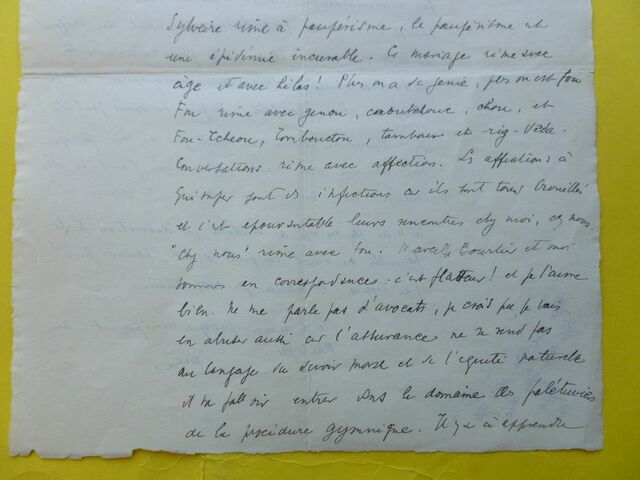 Sylveire rime à paupérisme, le paupérisme est
une épidémie incurable. Ce mariage rime avec
âge et avec hélas! Plus on a de génie, plus on est fou
Fou rime avec genou, caoutchouc, chou, et
Fou-Tcheou, Tombouctou, tambour et rig-Véda.
Conversations rime avec affection. Les affections à
Quimper sont des infections car ils sont tous brouillés
et c'est épouvantable leurs rencontres chez moi, chez nous.
"Chez nous" rime avec fou. Marcel et moi
sommes en correspondance: c'est flatteur! et je l'aime
bien. Ne me parle pas d'avocats, je crois que je vais
en abuser aussi car l'assurance ne se rend pas
au langage du devoir moral et de l'équité naturelle
il va falloir entrer dans le domaine des palétuviers
de la procédure gymnique. Il y a à apprendre